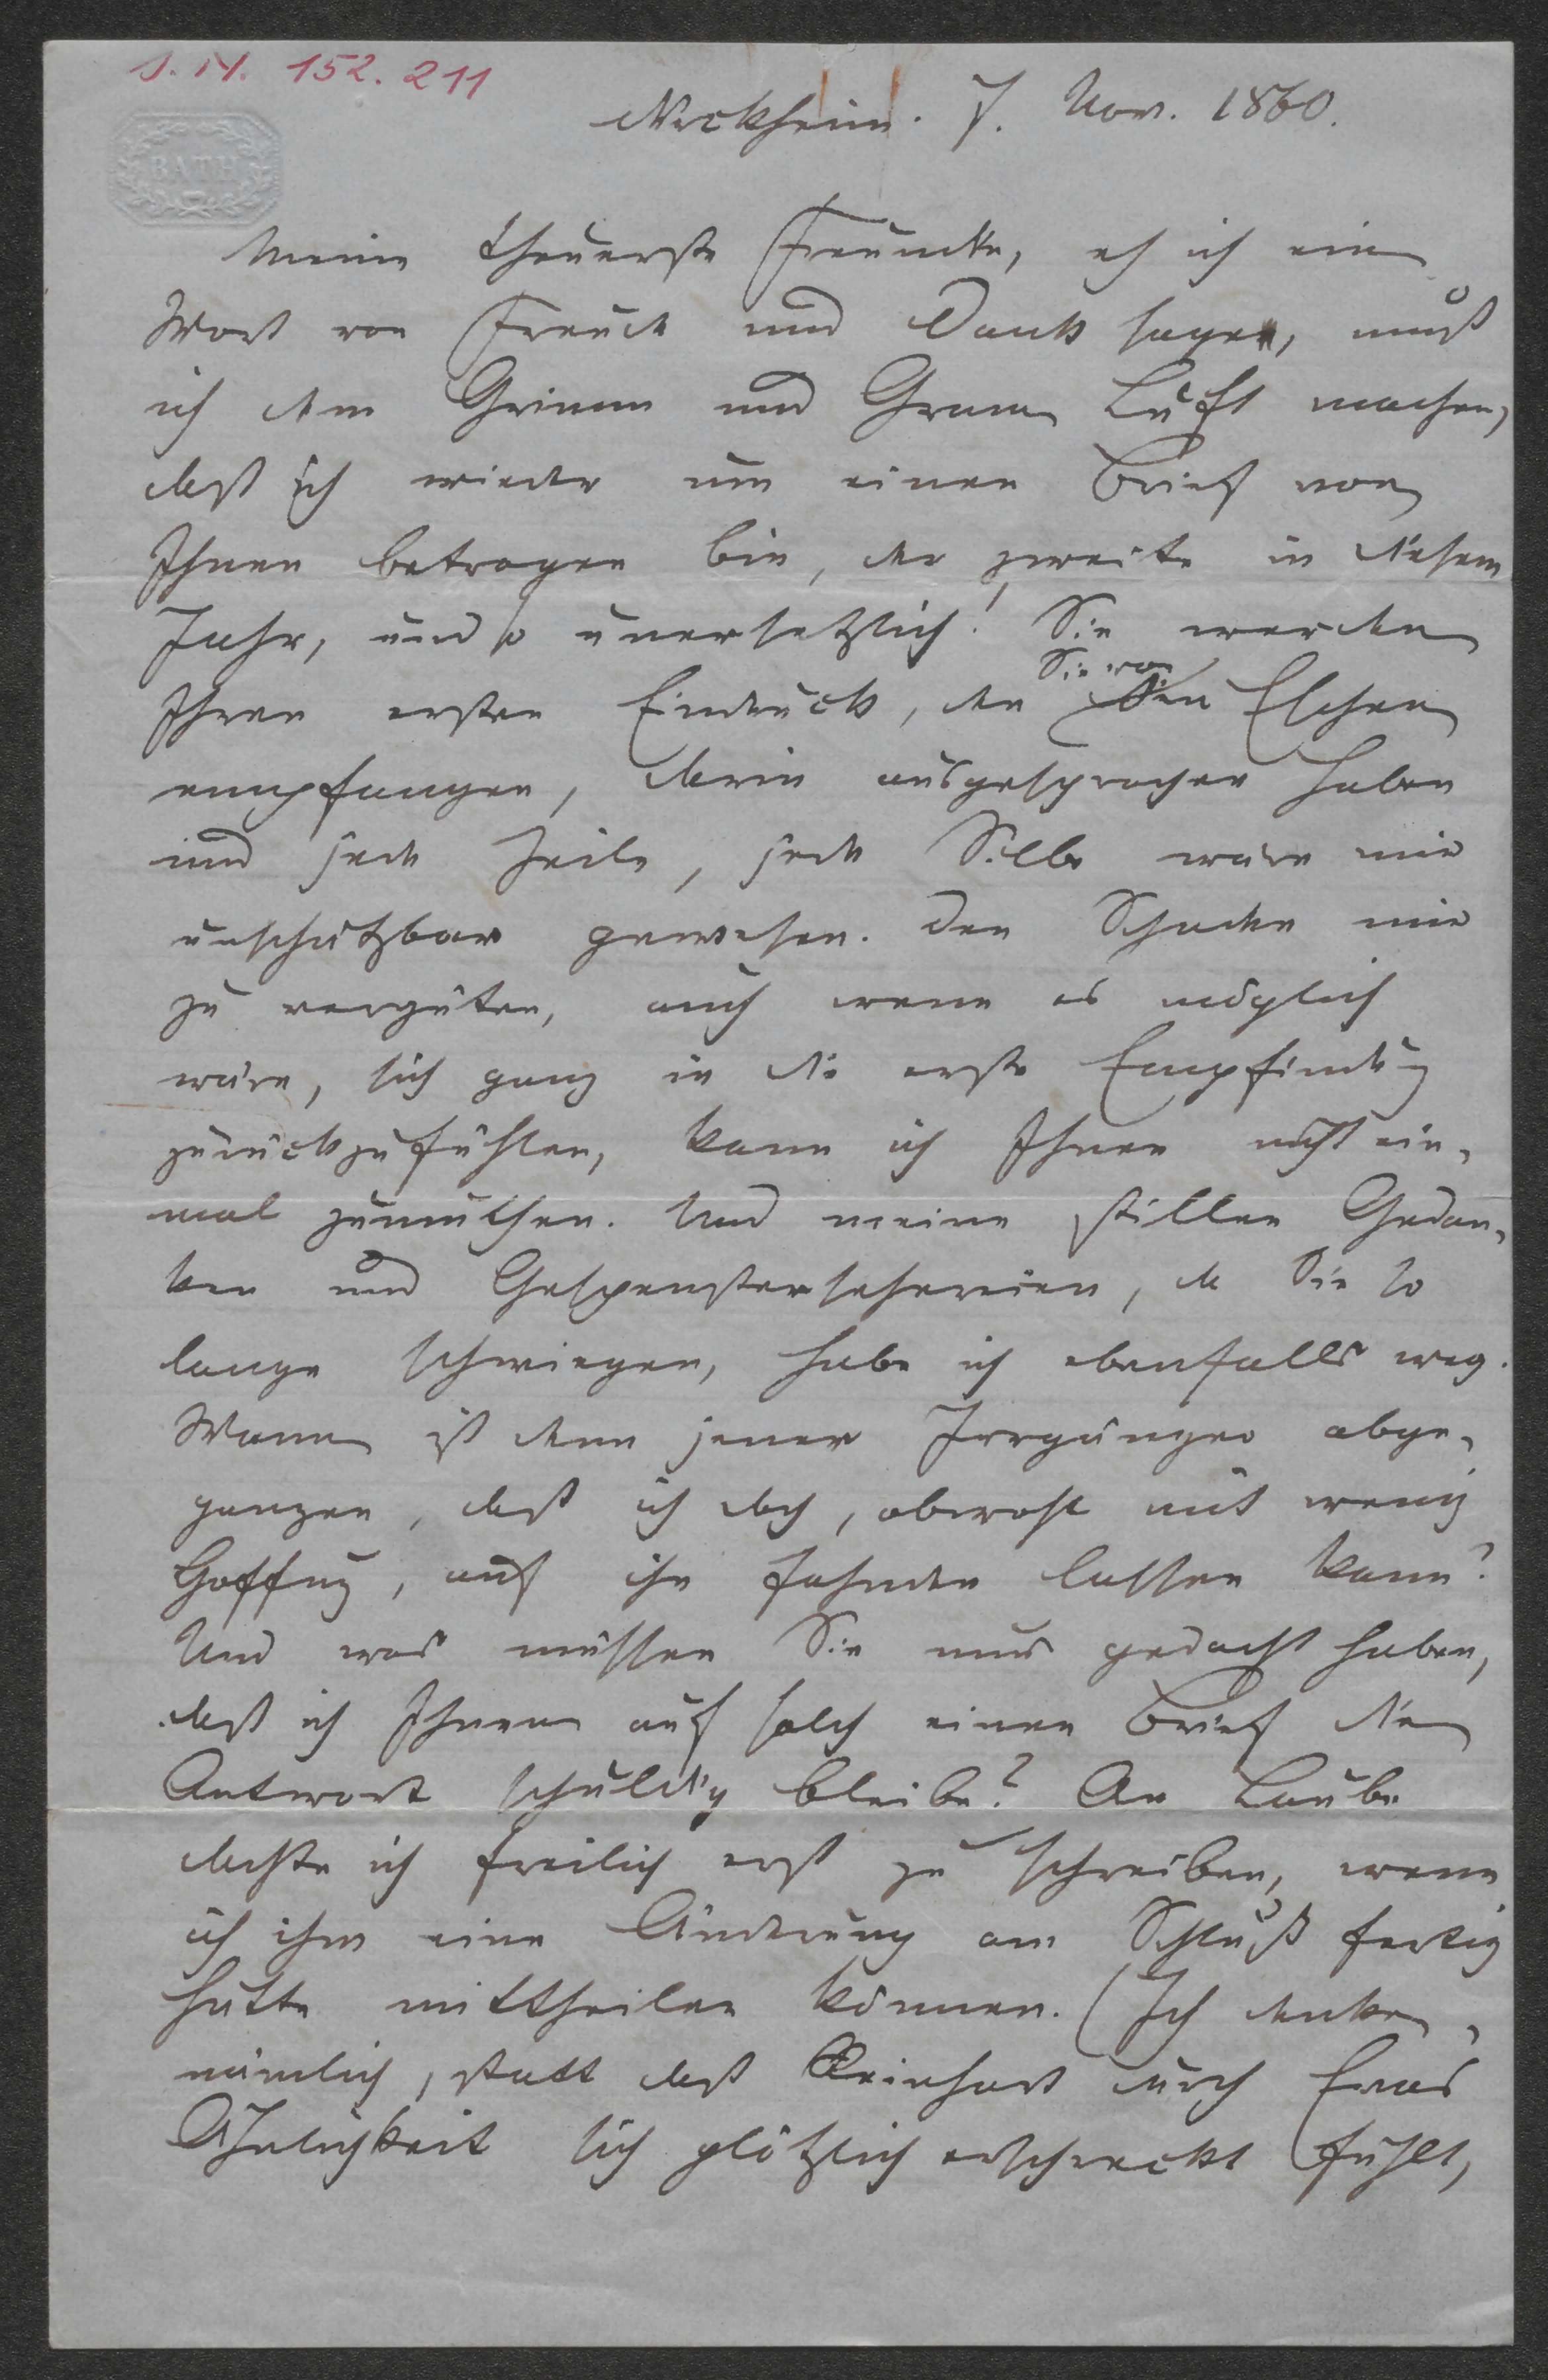 J. N. 152.211
BATH
7. Nov. 1860.
Meine theuerste Freundin, eh ich ein
Wort von Freude und Dank sage, muß
ich dem Grimm und Gram Luft machen,
daß ich wieder um einen Brief von
Ihnen betrogen bin, der zweite in diesem
Jahr, und so unersetzlich! Sie werden
Sie von
Ihren ersten Eindruck, den Elschen
empfangen, darin ausgesprochen haben
und jede Zeile, jede Silbe wäre mir
unschätzbar gewesen. Den Schaden mir
zu vergüten, auch wenn es möglich
wäre, sich ganz in die erste Empfindung
zurückzufühlen, kann ich Ihnen nicht ein-
mal zumuthen. Und meine stillen Gedan-
ken und Gespensterseherein, da Sie so
lange schwiegen, habe ich ebenfalls weg.
Wann ist denn jener Irrgänger abge-
gangen, daß ich doch, obwohl mit wenig
Hoffnung, auf ihn fahnden lassen kann?
Und was müssen Sie nur gedacht haben,
daß ich Ihnen auf solch einen Brief die
Antwort schuldig bleibe? An Laube
dachte ich freilich erst zu schreiben, wenn
ich ihm eine Änderung am Schluß fertig
hätte mittheilen können. (Ich denke,
nämlich, statt daß Reinhart durch Evas
Ähnlichkeit sich plötzlich erschreckt fühlt,